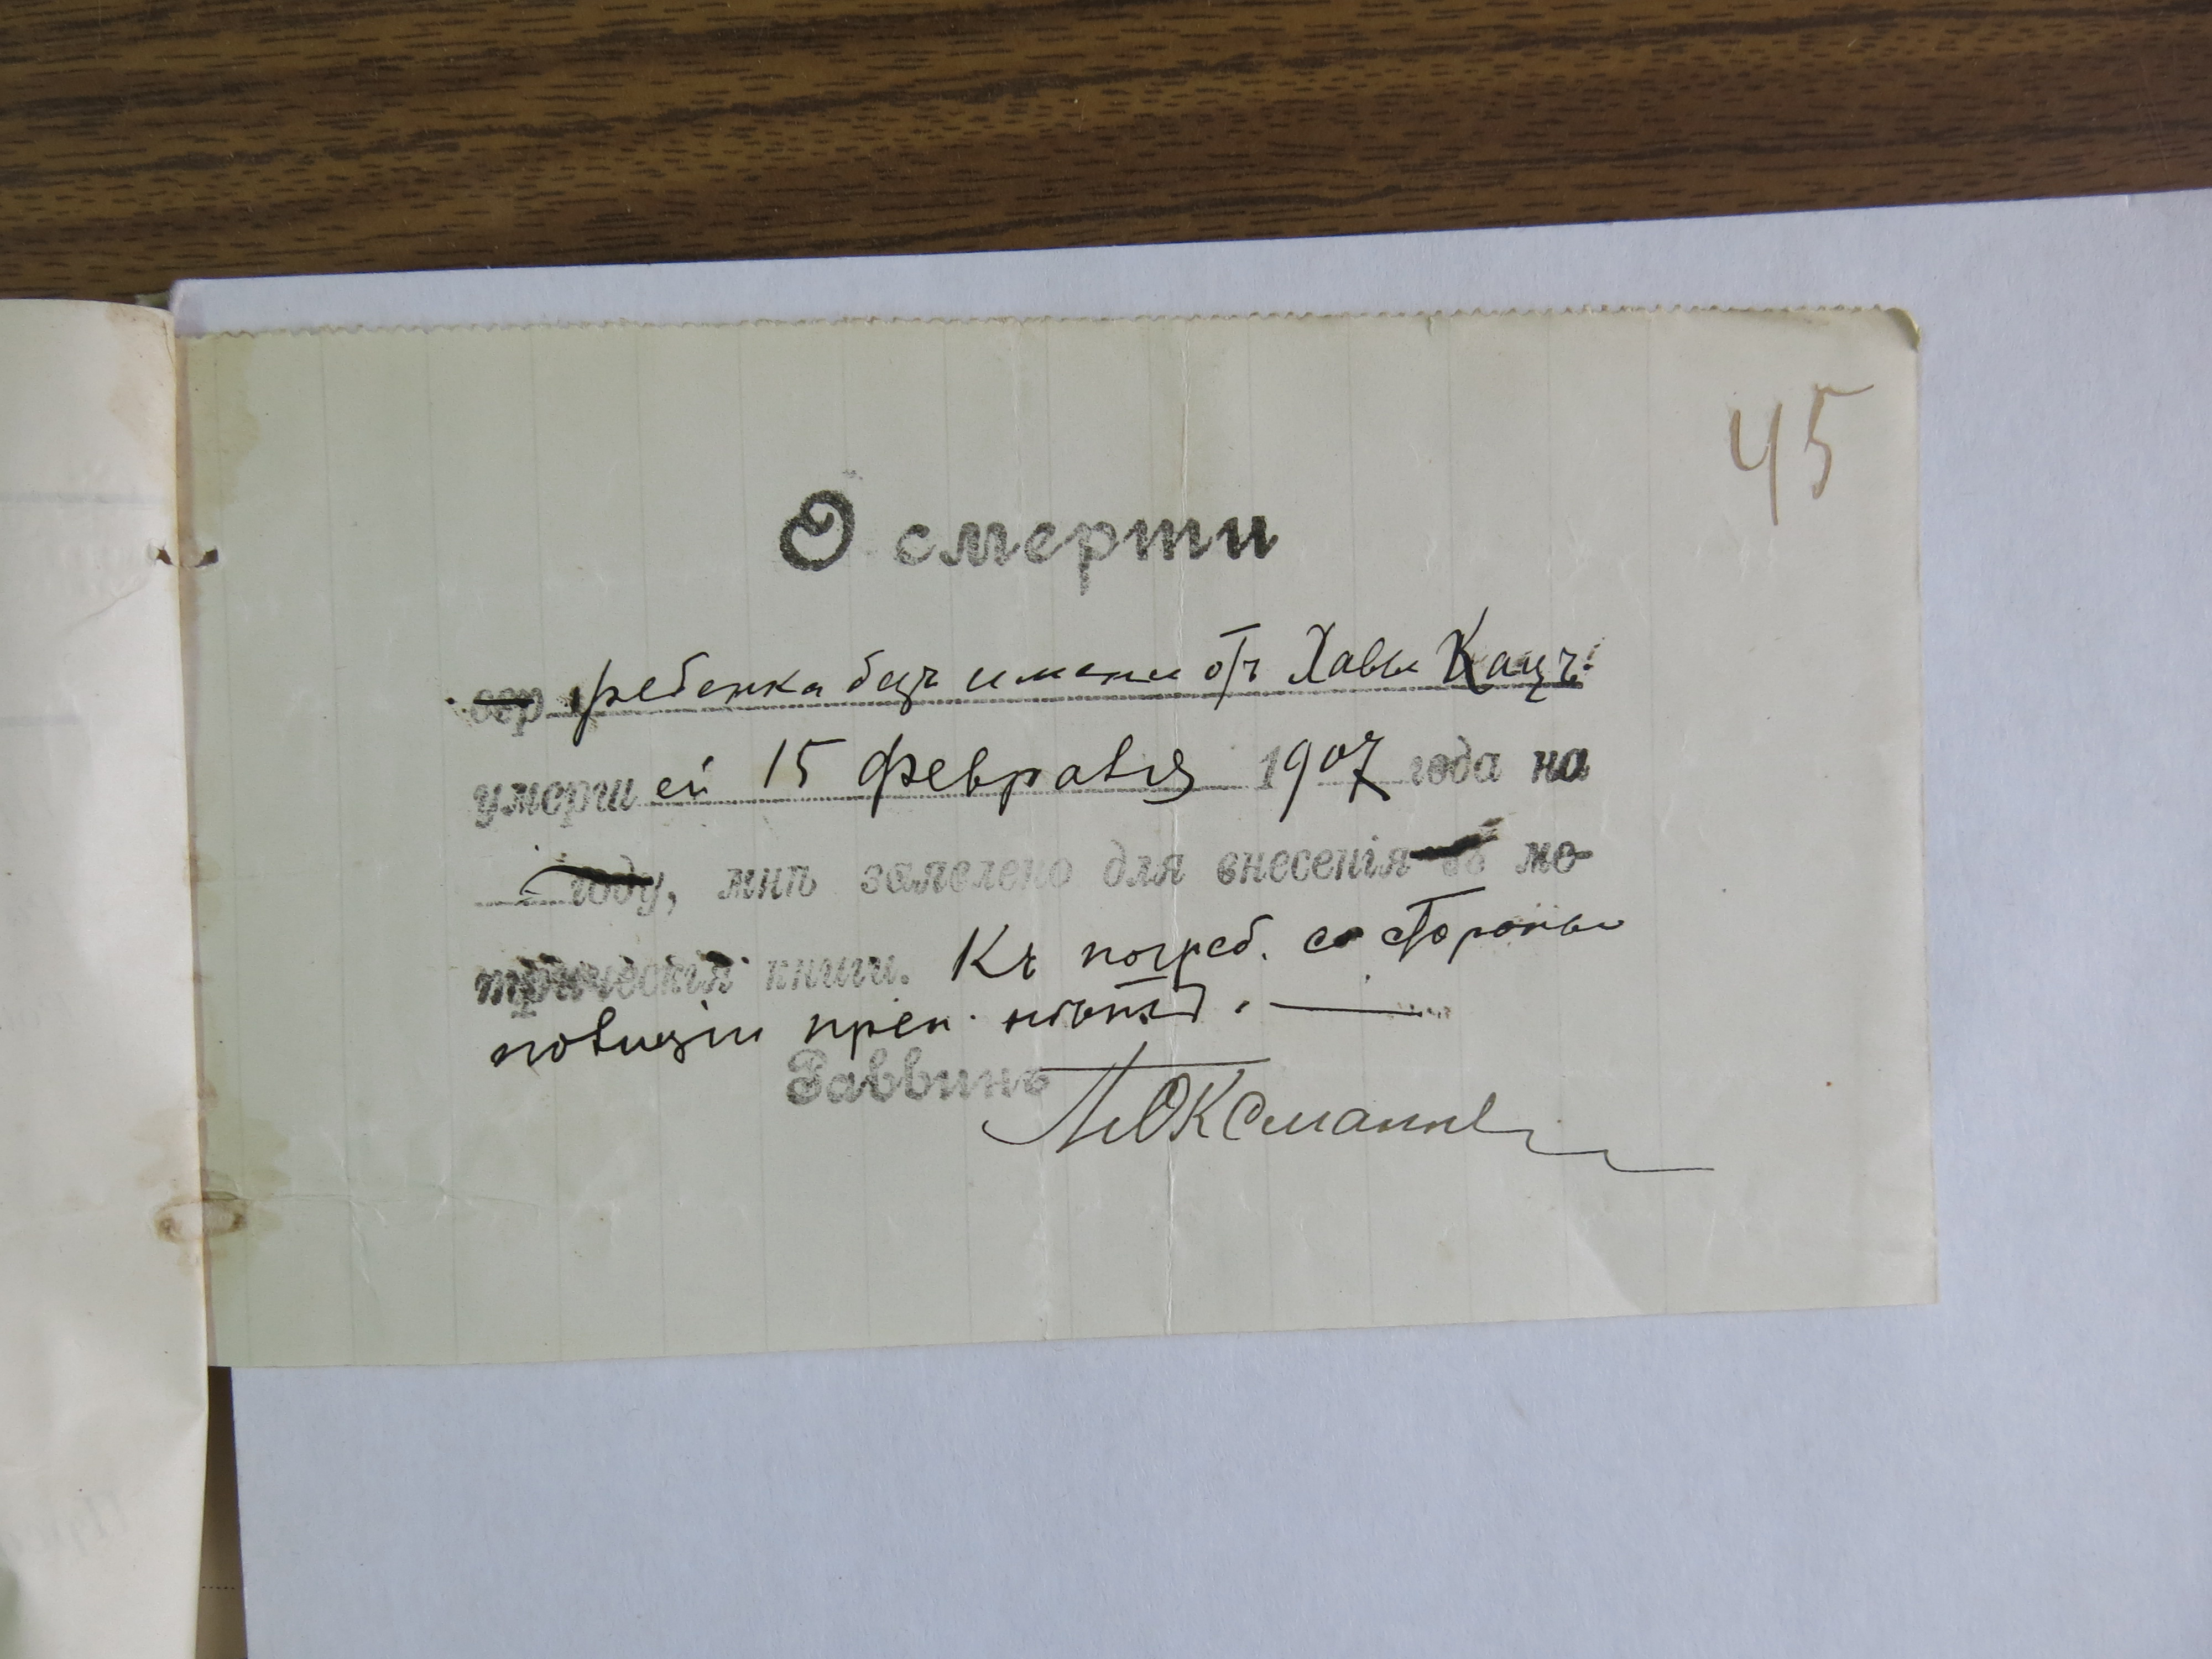 45
О смерти
евр ребенка безъ имени отъ Хавы Кацъ.
умерш ей 15 февраля 1907 года на
году, мнѣ заявлено для внесенія въ ме-
трическія книги. Къ погреб. со стороны
полиціи преп. нѣтъ.
Раввинъ